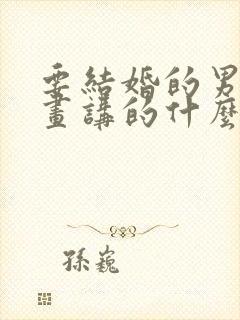 要結婚的男
畫講的什麼
孫巍